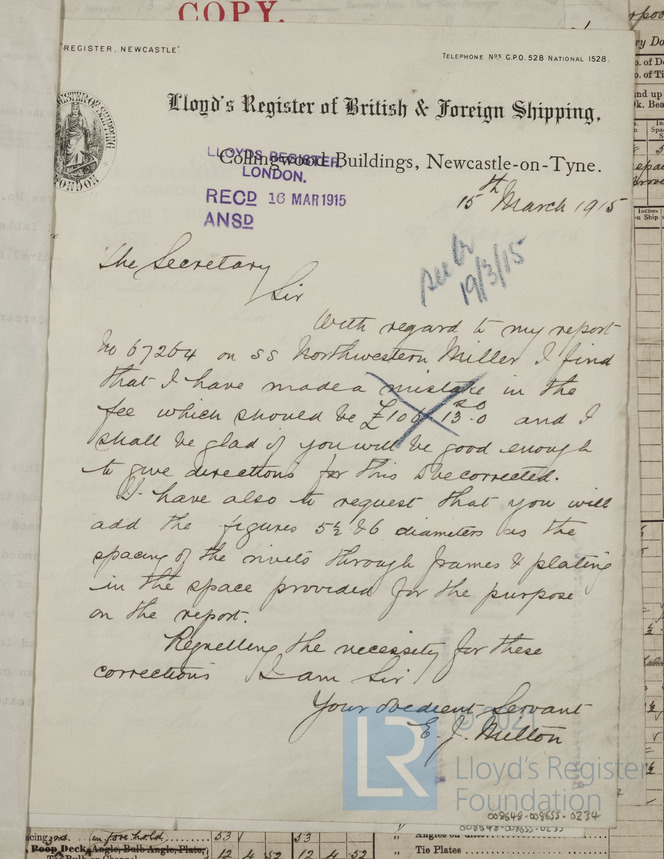 COPY.
"REGISTER, NEWCASTLE"
TELEPHONE Nos G.P.O. 528 NATIONAL 1528.
Lloyd's Register of British & Foreign Shipping,
Collingwood Buildings, Newcastle-on-Tyne.
LLOYDS REGISTER,
LONDON.
RECD 16 MAR 1915
ANSD
15th March 1915
19/3/15
The Secretary
Sir
With regard to my report
No 67264 on SS Northwestern Miller I find
that I have made a mistake in the
fee which should be £106-13-0 and I
shall be glad if you will be good enough
to give directions for this to be corrected.
I have also to request that you will
add the figures 5½ & 6 diameters as the
spacing of the rivets through frames & plating
in the space provided for the purpose
on the report.
Regretting the necessity for these
corrections I am Sir
Your obedient Servant
E. J. Milton
© 2021
LR
Lloyd's Register
Foundation
008648-008655-0234
in fore hold
53
53
Poop Deck Angle, Bulb Angle, Plate,
12 4 52 12 4 52
Tie Plates